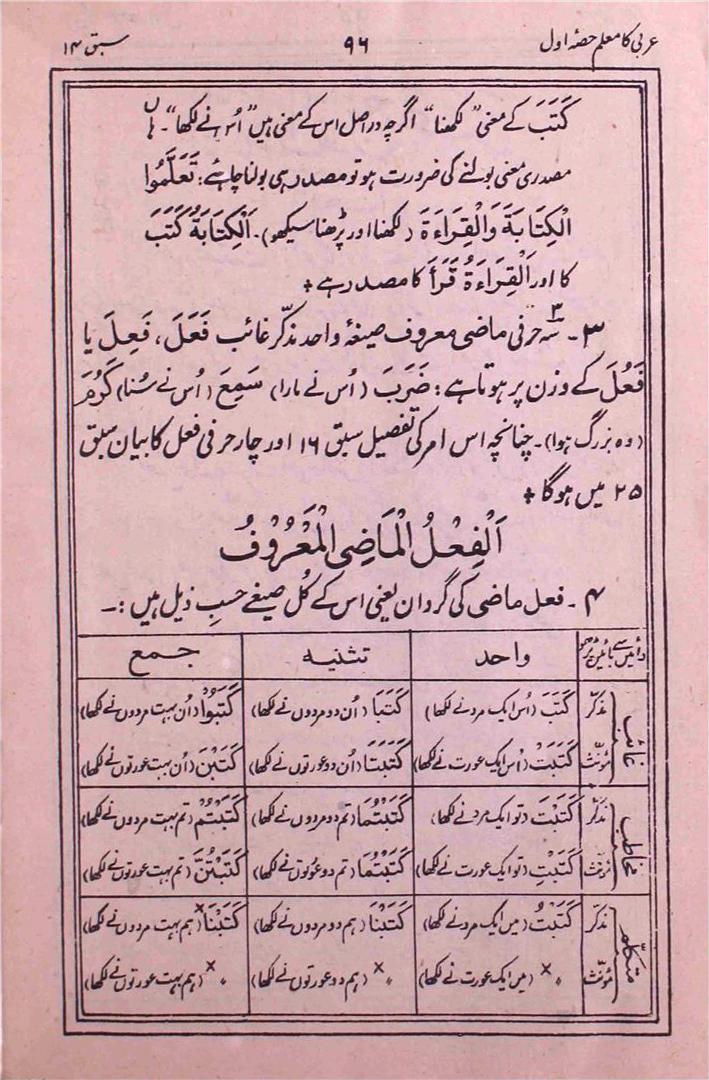 عربی کا معلم حصۂ اول ۹۶ سبق ۱۴
کَتَبَ کے معنی "لکھنا" اگرچہ دراصل اس کے معنی ہیں "اُس نے لکھا"۔ ہاں
مصدری معنی بولنے کی ضرورت ہو تو مصدر ہی بولنا چاہئے: تَعَلَّمُوا
الْکِتَابَةَ وَالْقِرَاءَةَ (لکھنا اور پڑھنا سیکھو)۔ اَلْکِتَابَةُ کَتَبَ
کا اور اَلْقِرَاءَةُ قَرَأَ کا مصدر ہے +
۳۔ سہ۳ حرفی ماضی معروف صیغۂ واحد مذکّر غائب فَعَلَ، فَعِلَ یا
فَعُلَ کے وزن پر ہوتا ہے: ضَرَبَ (اُس نے مارا) سَمِعَ (اُس نے سُنا) کَرُمَ
(وہ بزرگ ہوا)۔ چنانچہ اس امر کی تفصیل سبق ۱۶ اور چار حرفی فعل کا بیان سبق
۲۵ میں ہوگا +
اَلْفِعْلُ الْمَاضِی الْمَعْرُوْفُ
۴۔ فعل ماضی کی گردان یعنی اس کے کُل صیغے حسبِ ذیل ہیں :۔
دائیں سے بائیں پڑھو واحد تثنیہ جمع
غائب مذکّر کَتَبَ (اُس ایک مرد نے لکھا) کَتَبَا (اُن دو مردوں نے لکھا) کَتَبُوْا (اُن بہت مردوں نے لکھا)
مؤنّث کَتَبَتْ (اُس ایک عورت نے لکھا) کَتَبَتَا (اُن دو عورتوں نے لکھا) کَتَبْنَ (اُن بہت عورتوں نے لکھا)
مخاطب مذکّر کَتَبْتَ (تو ایک مرد نے لکھا) کَتَبْتُمَا (تم دو مردوں نے لکھا) کَتَبْتُمْ (تم بہت مردوں نے لکھا)
مؤنّث کَتَبْتِ (تو ایک عورت نے لکھا) کَتَبْتُمَا (تم دو عورتوں نے لکھا) کَتَبْتُنَّ (تم بہت عورتوں نے لکھا)
متکلّم مذکّر کَتَبْتُ (میں ایک مرد نے لکھا) کَتَبْنَا (ہم دو مردوں نے لکھا) کَتَبْنَا× (ہم بہت مردوں نے لکھا)
مؤنّث ״ × (میں ایک عورت نے لکھا) ״ × (ہم دو عورتوں نے لکھا) ״ × (ہم بہت عورتوں نے لکھا)